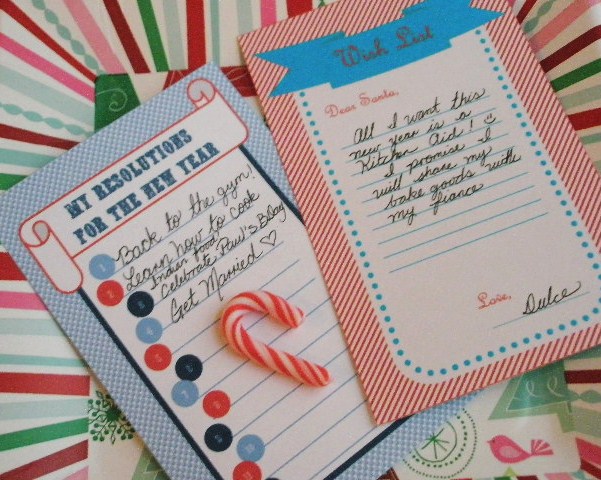 MY RESOLUTIONS
FOR THE NEW YEAR
1 Back to the gym!
2 Learn how to cook
Indian food
3 Celebrate Paul's Bday
4 Get Married ♡
5
6
7
8
9
10
11
Wish List
Dear Santa,
All I want this
new year is a
Kitchen Aid! ☺
I promise I
will share my
bake goods with
my fiance
Love,
Dulce